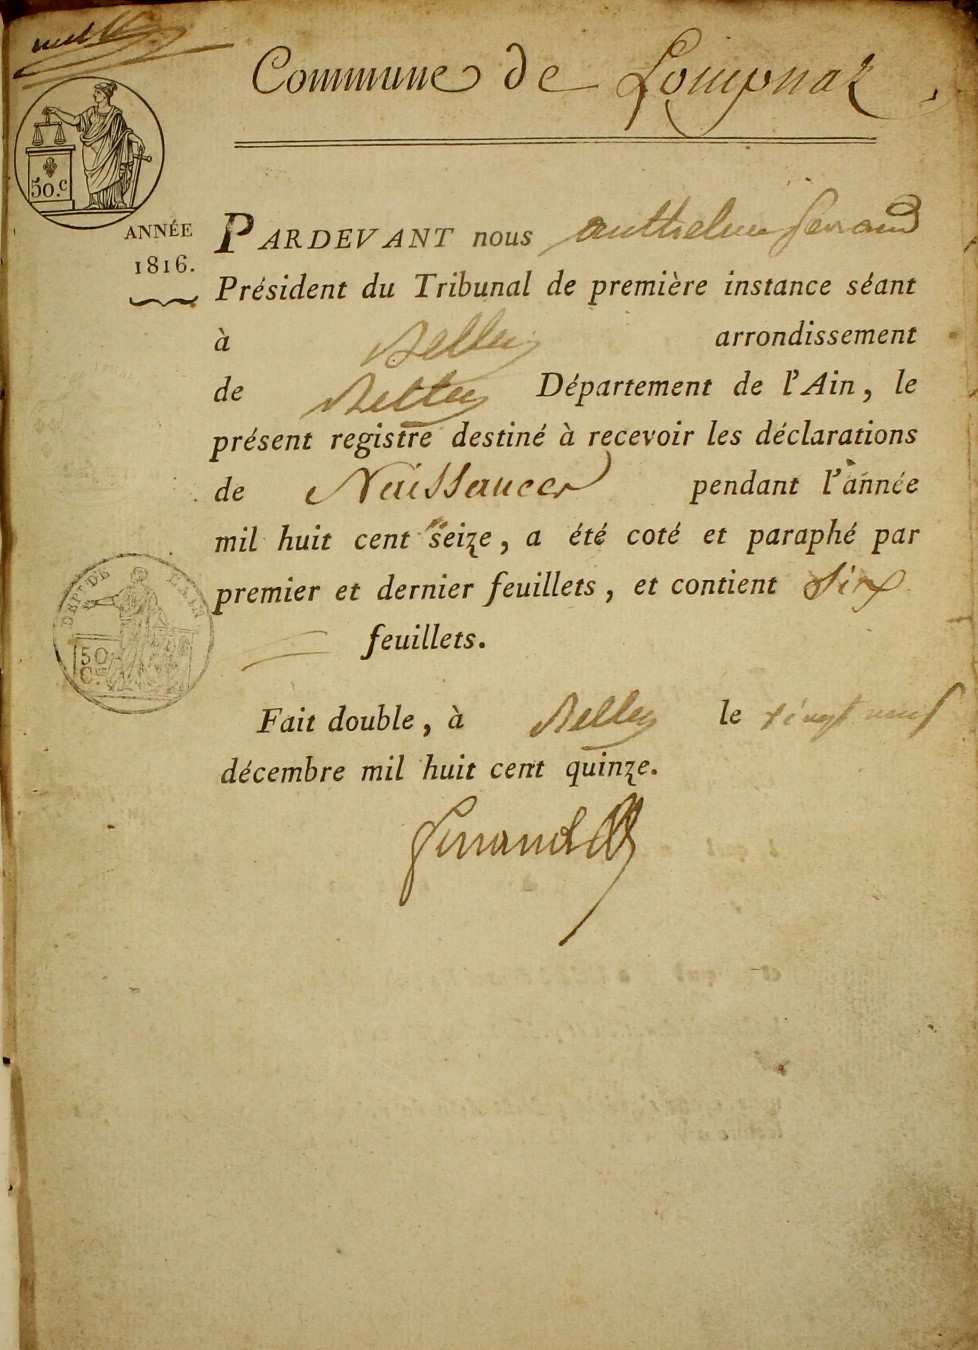 Commune de Lompnaz
50.c
ANNÉE
1816.
PARDEVANT nous anthelme ferrand
Président du Tribunal de première instance séant
à Belley arrondissement
de Belley Département de l'Ain, le
présent registre destiné à recevoir les déclarations
de Naissances pendant l'année
mil huit cent seize, a été coté et paraphé par
premier et dernier feuillets, et contient six
feuillets.
DEP. DE L'AIN
50
C.
Fait double, à Belley le vingt neuf
décembre mil huit cent quinze.
ferrand